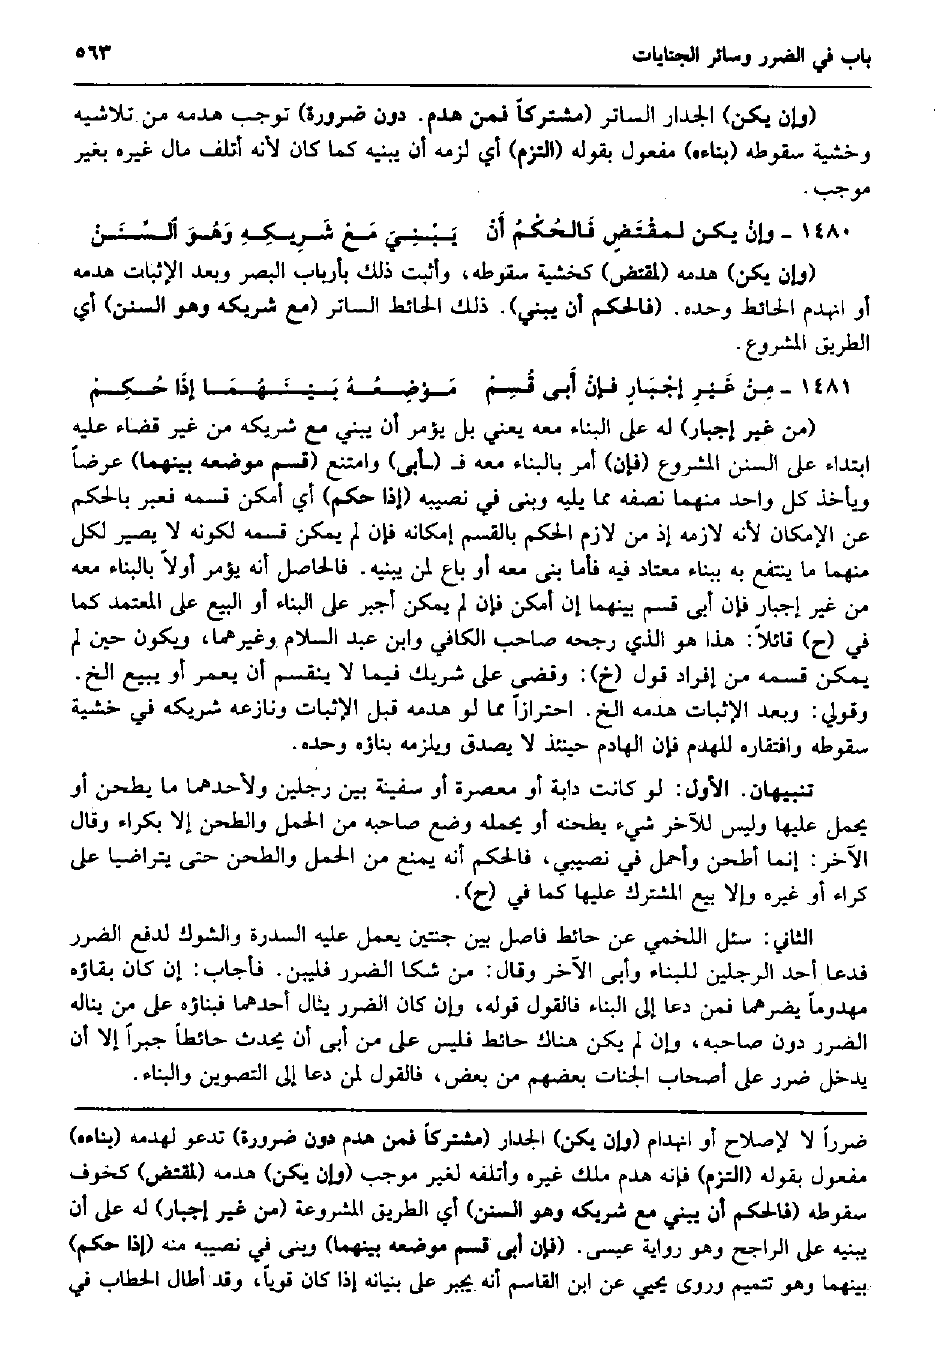 باب في الضرر وسائر الجنايات ٥٦٣
(وإن يكن) الجدار الساتر (مشتركاً فمن هدم. دون ضرورة) توجب هدمه من تلاشيه
وخشية سقوطه (بناءه) مفعول بقوله (التزم) أي لزمه أن يبنيه كما كان لأنه أتلف مال غيره بغير
موجب.
١٤٨٠ - وإن يكن لمقْتَضٍ فَالحُكْمُ أَنْ يَبْنِيَ مَعْ شَرِيكِهِ وَهُوَ ٱلسَّنَنْ
(وإن يكن) هدمه (لمقتض) كخشية سقوطه، وأثبت ذلك بأرباب البصر وبعد الإثبات هدمه
أو انهدم الحائط وحده. (فالحكم أن يبني). ذلك الحائط الساتر (مع شريكه وهو السنن) أي
الطريق المشروع.
١٤٨١ - مِنْ غَيْرِ إِجْبَارٍ فَإنْ أَبى قُسِمْ مَوْضِعُهُ بَيْنَهُمَا إذَا حُكِمْ
(من غير إجبار) له على البناء معه يعني بل يؤمر أن يبني مع شريكه من غير قضاء عليه
ابتداء على السنن المشروع (فإن) أمر بالبناء معه فـ (ـأبى) وامتنع (قسم موضعه بينهما) عرضاً
ويأخذ كل واحد منهما نصفه مما يليه وبنى في نصيبه (إذا حكم) أي أمكن قسمه فعبر بالحكم
عن الإمكان لأنه لازمه إذ من لازم الحكم بالقسم إمكانه فإن لم يمكن قسمه لكونه لا يصير لكل
منهما ما ينتفع به ببناء معتاد فيه فأما بنى معه أو باع لمن يبنيه. فالحاصل أنه يؤمر أولاً بالبناء معه
من غير إجبار فإن أبى قسم بينهما إن أمكن فإن لم يمكن أجبر على البناء أو البيع على المعتمد كما
في (ح) قائلاً: هذا هو الذي رجحه صاحب الكافي وابن عبد السلام وغيرهما، ويكون حين لم
يمكن قسمه من إفراد قول (خ): وقضى على شريك فيما لا ينقسم أن يعمر أو يبيع الخ.
وقولي: وبعد الإثبات هدمه الخ. احترازاً مما لو هدمه قبل الإثبات ونازعه شريكه في خشية
سقوطه وافتقاره للهدم فإن الهادم حينئذ لا يصدق ويلزمه بناؤه وحده.
تنبيهان. الأول: لو كانت دابة أو معصرة أو سفينة بين رجلين ولأحدهما ما يطحن أو
يحمل عليها وليس للآخر شيء يطحنه أو يحمله وضع صاحبه من الحمل والطحن إلا بكراء وقال
الآخر: إنما أطحن وأحمل في نصيبي، فالحكم أنه يمنع من الحمل والطحن حتى يتراضيا على
كراء أو غيره وإلا بيع المشترك عليها كما في (ح).
الثاني: سئل اللخمي عن حائط فاصل بين جنتين يعمل عليه السدرة والشوك لدفع الضرر
فدعا أحد الرجلين للبناء وأبى الآخر وقال: من شكا الضرر فليبن. فأجاب: إن كان بقاؤه
مهدوماً يضرهما فمن دعا إلى البناء فالقول قوله، وإن كان الضرر ينال أحدهما فبناؤه على من يناله
الضرر دون صاحبه، وإن لم يكن هناك حائط فليس على من أبى أن يحدث حائطاً جبراً إلا أن
يدخل ضرر على أصحاب الجنات بعضهم من بعض، فالقول لمن دعا إلى التصوين والبناء.
ضرراً لا لإصلاح أو انهدام (وإن يكن) الجدار (مشتركاً فمن هدم دون ضرورة) تدعو لهدمه (بناءه)
مفعول بقوله (التزم) فإنه هدم ملك غيره وأتلفه لغير موجب (وإن يكن) هدمه (لمقتض) كخوف
سقوطه (فالحكم أن يبني مع شريكه وهو السنن) أي الطريق المشروعة (من غير إجبار) له على أن
يبنيه على الراجح وهو رواية عيسى. (فإن أبى قسم موضعه بينهما) وبنى في نصيبه منه (إذا حكم)
بينهما وهو تتميم وروى يحيي عن ابن القاسم أنه يجبر على بنيانه إذا كان قوياً، وقد أطال الخطاب في